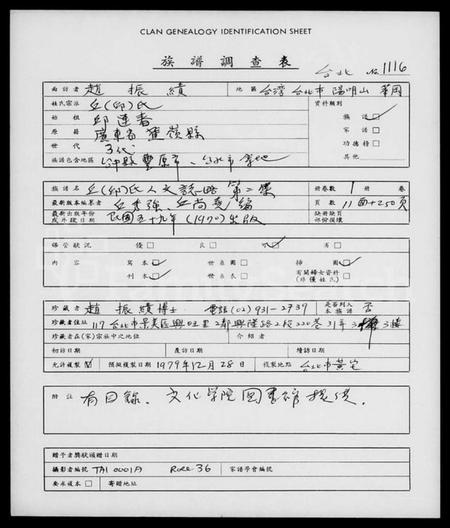 CLAN GENEALOGY IDENTIFICATION SHEET
族譜調查表
台北 No 1116
面訪者 趙振績 地區 台灣台北市陽明山華岡
姓氏宗派 丘(邱)氏 資料類別
始祖 邱連春 族譜
原籍 廣東省蕉嶺縣 家譜
世代 3代 功德榜
族譜包含地區 台中縣豐原市、台北市等地 其他
族譜名 丘(邱)氏人文誌略第二集 冊卷數 1 冊 卷
最新版本編纂者 丘秀強、丘尚堯編 頁數 11面+250頁
最新出版年份 民國五十九年(1970)出版 缺冊缺頁
或抄錄日期 部份損壞
保管狀況 優 良 可 劣
內容 寫本 世系圖 插圖
刊本 世系表 有關婦女資料
(外僅姓氏)
珍藏者 趙振績博士 電話(02)931-2737 是否列入本族譜 否
珍藏者住址 117台北市景美區興旺里2鄰興隆路2段220巷31弄3樓
珍藏者在(宗)家祠中之地位 介紹者
初訪日期 產訪日期 續訪日期
允許複製 閱 預擬複製日期 1979年12月28日 複製地點 台北市黃宅
附註 有目錄、文化學院圖書館提供.
贈予者獎狀頒贈日期
攝影者編號 TAI 0001A ROLL 36 家譜學會編號
要求複本 寄贈地址